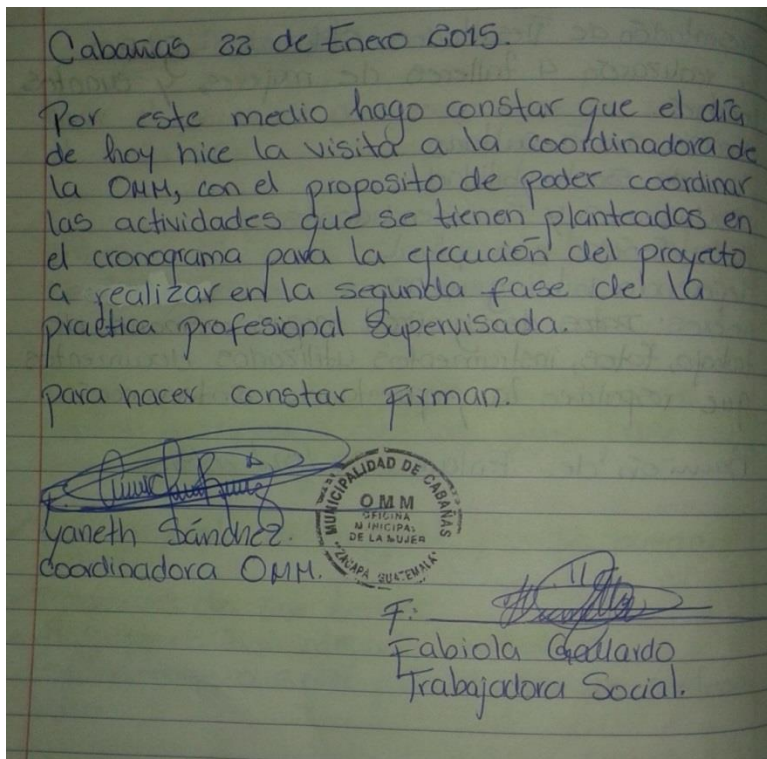 Cabañas 22 de Enero 2015.
Por este medio hago constar que el día
de hoy hice la visita a la coordinadora de
la OMM, con el proposito de poder coordinar
las actividades que se tienen planteadas en
el cronograma para la ejecución del proyecto
a realizar en la segunda fase de la
practica profesional Supervisada.
para hacer constar Firman.
F.
Yaneth Sánchez.
Coordinadora OMM.
MUNICIPALIDAD DE CABAÑAS
OMM
OFICINA
MUNICIPAL
DE LA MUJER
ZACAPA GUATEMALA
F:
Fabiola Gallardo
Trabajadora Social.